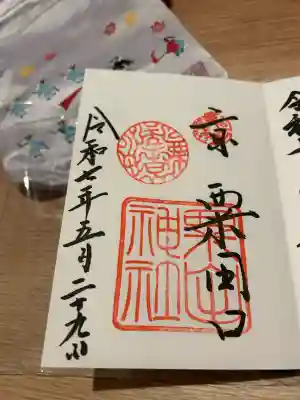 令和
京 粟田口
粟田
神社
令和七年五月二十九日